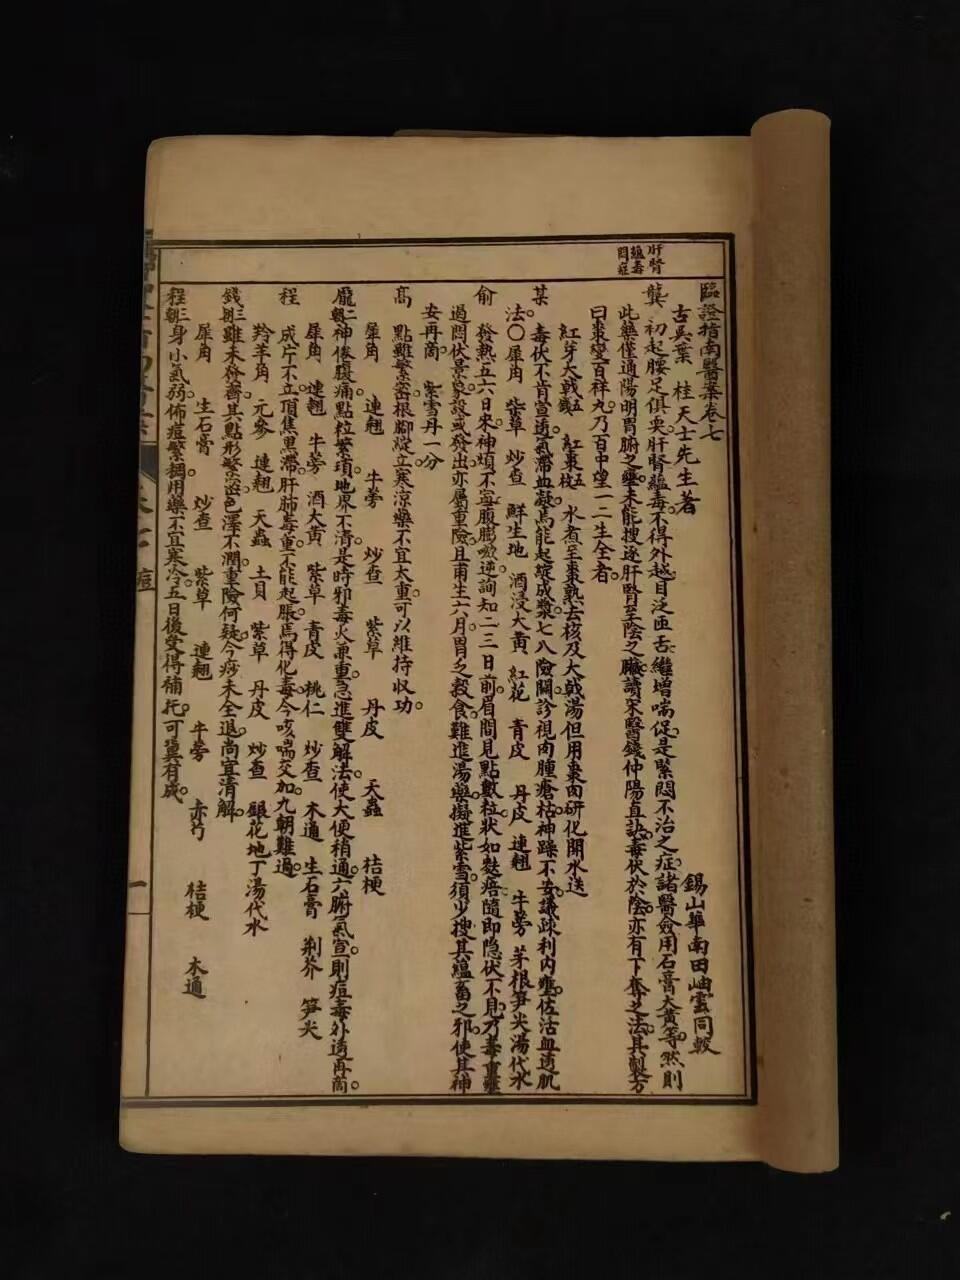 肝腎
蘊毒
悶症
臨證指南醫案卷七
古吳葉　桂天士先生著
錫山華南田岫雲同較
龔　初起腰足俱耎。肝腎蘊毒。不得外越。目泛面舌。繼增喘促。是緊悶不治之症。諸醫僉用石膏大黃等。然則
此藥僅通陽明胃腑之壅。未能搜逐肝腎至陰之臟。讀宋醫錢仲陽直訣。毒伏於陰。亦有下奪之法。其製方
曰棗變百祥丸。乃百中望一二生全者。
紅芽大戟五錢　紅棗五枚　水煮至棗熟去核及大戟湯但用棗肉研化開水送
某　毒伏不肯宣透。氣滯血凝。焉能起綻成漿。七八險關。診視肉腫瘡枯。神躁不安。議疎利內壅。佐活血透肌
法。〇犀角　紫草　炒查　鮮生地　酒浸大黃　紅花　青皮　丹皮　連翹　牛蒡　茅根笋尖湯代水
俞　發熱五六日來。神煩不寧。腹膨嗽逆。詢知二三日前。眉間見點數粒。狀如麩痦。隨即隐伏不見。乃毒重壅
過悶伏景象。設或發出。亦屬重險。且甫生六月。胃乏穀食。難進湯藥。擬進紫雪。須少搜其蘊畜之邪。使其神
安再商　紫雪丹一分
高　點雖繁密。根腳綻立。寒涼藥不宜太重。可以維持收功。
犀角　連翹　牛蒡　炒查　紫草　丹皮　天蟲　桔梗
龐二朝　神倦腹痛。點粒繁瑣。地界不清。是時邪毒火兼重。急進雙解法。使大便稍通。六腑氣宣。則痘毒外透再商。
犀角　連翹　牛蒡　酒大黃　紫草　青皮　桃仁　炒查　木通　生石膏　荆芥　笋尖
程　成片不立。頂焦黑滯。肝肺毒重。不能起脹。焉得化毒。今咳喘交加。九朝難過。
羚羊角　元參　連翹　天蟲　土貝　紫草　丹皮　炒查　銀花地丁湯代水
錢三朝　雖未稱齊。其點形繁密。色澤不潤。重險何疑。今痧未全退。尚宜清解。
犀角　生石膏　炒查　紫草　連翹　牛蒡　赤芍　桔梗　木通
程三朝　身小氣弱。佈痘繁稠。用藥不宜寒冷。五日後受得補托。可冀有成。
卷七　痘
一